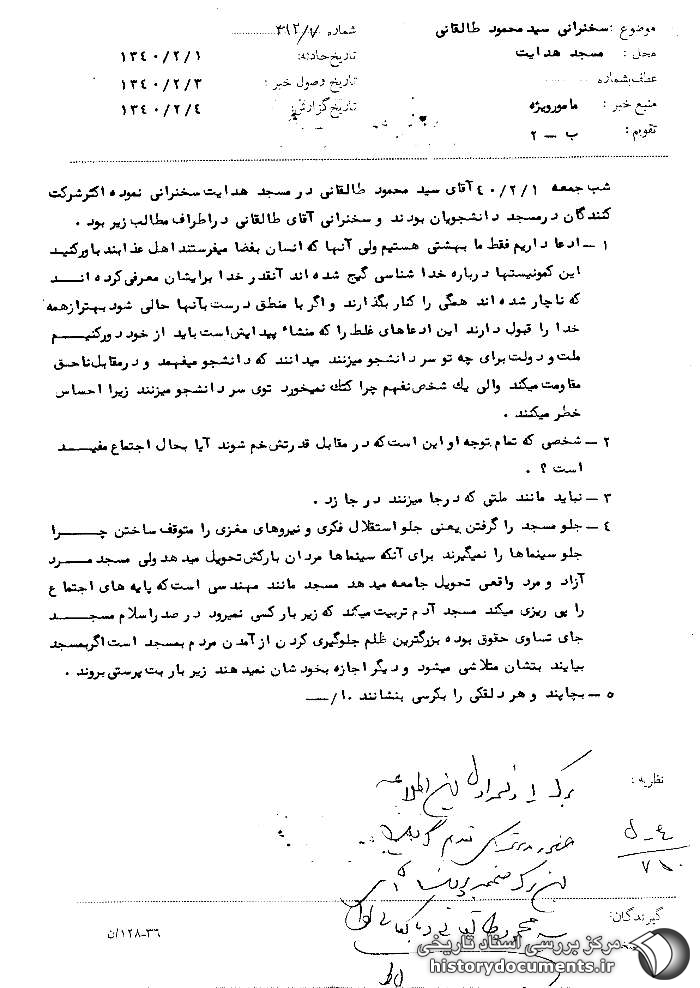 موضوع : سخنرانی سید محمود طالقانی
شماره ۳۱۲/۷
محل : مسجد هدایت
تاریخ حادثه: ۱۳۴۰/۲/۱
عطف بشماره
تاریخ وصول خبر : ۱۳۴۰/۲/۳
منبع خبر : مامورویژه
تاریخ گزارش: ۱۳۴۰/۲/۴
تقویم : ب – ۲
شب جمعه ۴۰/۲/۱ آقای سید محمود طالقانی در مسجد هدایت سخنرانی نموده اکثر شرکت
کنندگان در مسجد دانشجویان بودند و سخنرانی آقای طالقانی در اطراف مطالب زیر بود .
۱ – ادعا داریم فقط ما بهشتی هستیم ولی آنها که انسان بفضا میفرستند اهل عذابند باورکنید
این کمونیستها درباره خدا شناسی گیج شده اند آنقدر خدا برایشان معرفی کرده انـــد
که ناچار شده اند همگی را کنار بگذارند و اگر با منطق درست بآنها حالی شود بهتر از همه
خدا را قبول دارند این ادعاهای غلط را که منشاء پیدایش است باید از خود دورکنیــم
ملت و دولت برای چه تو سر دانشجو میزنند میدانند که دانشجو میفهمد و در مقابل ناحـق
مقاومت میکند والی یك شخص نفهم چرا کتك نمیخورد توی سر دانشجو میزنند زیرا احساس
خطر میکنند .
۲ – شخصی که تمام توجه او این است که در مقابل قدرتش خم شوند آیا بحال اجتماع مفیــد
است ؟ .
۳ – نباید مانند ملتی که درجا میزنند درجا زد .
۴ – جلو مسجد را گرفتن یعنی جلو استقلال فکری و نیروهای مغزی را متوقف ساختن چــرا
جلو سینماها را نمیگیرند برای آنکه سینماها مردان بارکش تحویل میدهد ولی مسجد مــرد
آزاد و مرد واقعی تحویل جامعه میدهد مسجد مانند مهندسی است که پایه های اجتماع
را پی ریزی میکند مسجد آدم تربیت میکند که زیر بار کسی نمیرود در صدر اسلام مسجــد
جای تساوی حقوق بوده بزرگترین ظلم جلوگیری کردن از آمدن مردم بمسجد است اگر بمسجد
بیایند بتشان متلاشی میشود و دیگر اجازه بخودشان نمیدهند زیر بار بت پرستی بروند .
۵ – بچاپند و هر دلقکی را بکرسی بنشانند ۱۰/—
نظریه :
گیرندگان:
۳۶-۱۲۸/ان
مرکز بررسی اسناد تاریخی
historydocuments.ir